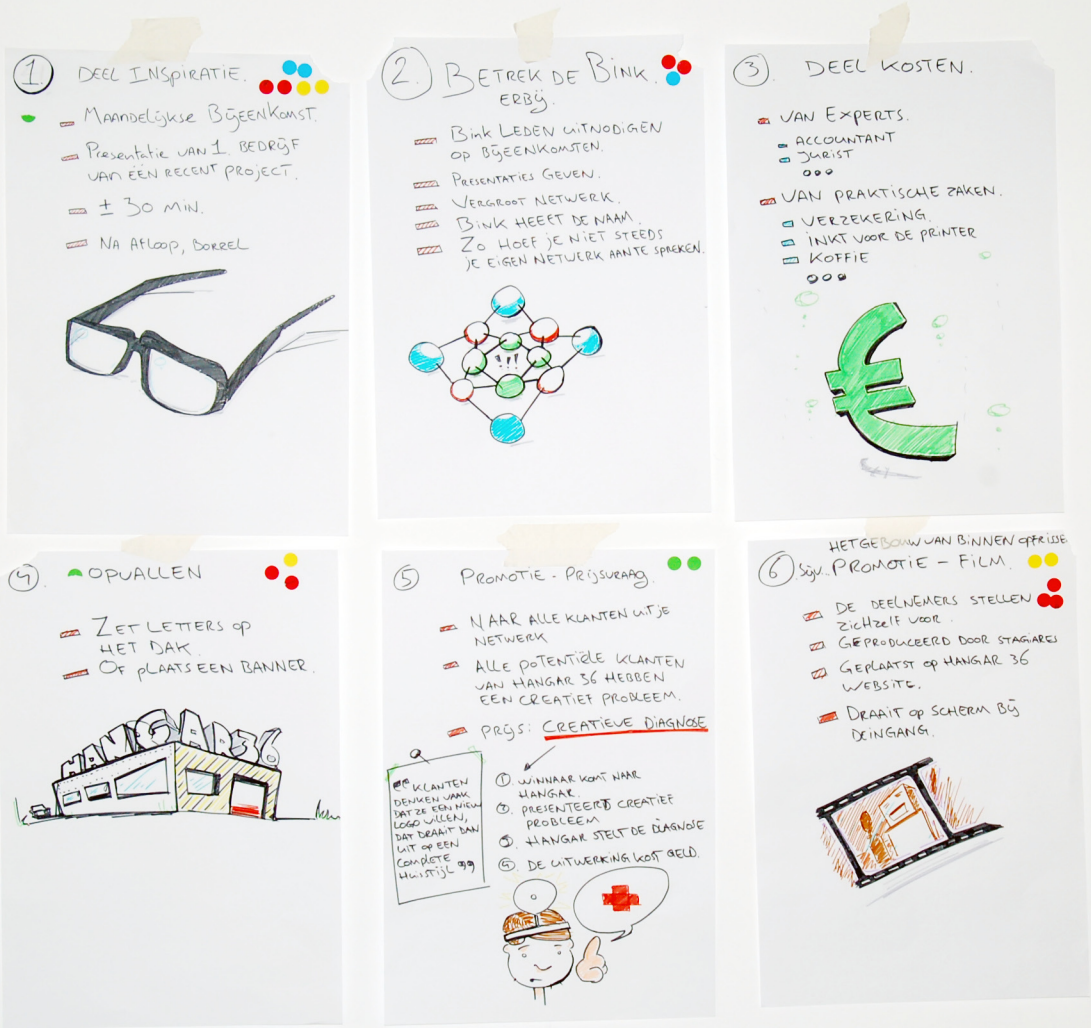 1 DEEL INSPIRATIE.
MAANDELIJKSE BIJEENKOMST.
PRESENTATIE VAN 1. BEDRIJF
VAN EÉN RECENT PROJECT.
± 30 MIN.
NA AFLOOP, BORREL
2. BETREK DE BINK.
ERBIJ.
BINK LEDEN UITNODIGEN
OP BIJEENKOMSTEN.
PRESENTATIES GEVEN.
VERGROOT NETWERK.
BINK HEEFT DE NAAM.
ZO HOEF JE NIET STEEDS
JE EIGEN NETWERK AAN TE SPREKEN.
!!!
3. DEEL KOSTEN.
VAN EXPERTS.
ACCOUNTANT
JURIST
VAN PRAKTISCHE ZAKEN.
VERZEKERING.
INKT VOOR DE PRINTER
KOFFIE
€
4 OPVALLEN
ZET LETTERS OP
HET DAK.
OF PLAATS EEN BANNER.
HANGAR36
5 PROMOTIE - PRIJSVRAAG.
NAAR ALLE KLANTEN UIT JE
NETWERK
ALLE POTENTIËLE KLANTEN
VAN HANGAR 36 HEBBEN
EEN CREATIEF PROBLEEM.
PRIJS: CREATIEVE DIAGNOSE
1. WINNAAR KOMT NAAR
HANGAR.
2. PRESENTEERT CREATIEF
PROBLEEM
3. HANGAR STELT DE DIAGNOSE
4. DE UITWERKING KOST GELD.
"KLANTEN
DENKEN VAAK
DAT ZE EEN NIEUW
LOGO WILLEN,
DAT DRAAIT DAN
UIT OP EEN
COMPLETE
HUISTIJL"
HET GEBOUW VAN BINNEN OPFRISSE
6 PROMOTIE - FILM.
DE DEELNEMERS STELLEN
ZICHZELF VOOR.
GEPRODUCEERD DOOR STAGIARES
GEPLAATST OP HANGAR 36
WEBSITE.
DRAAIT OP SCHERM BIJ
DEINGANG.